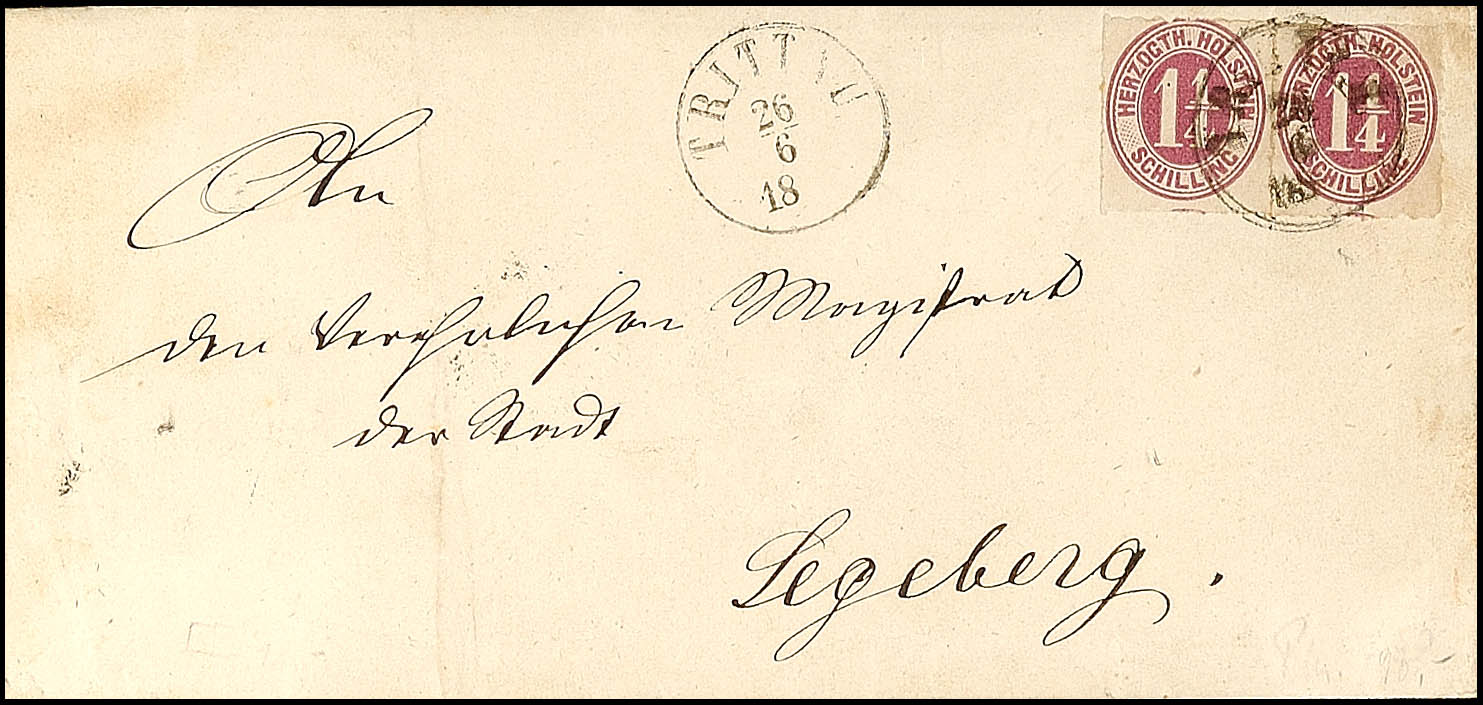 TRITTAU
26
6
18
HERZOGTH. HOLSTEIN
1 1/4
SCHILLING
HERZOGTH. HOLSTEIN
1 1/4
SCHILLING
An
den Verehrlichen Magistrat
der Stadt
Segeberg.